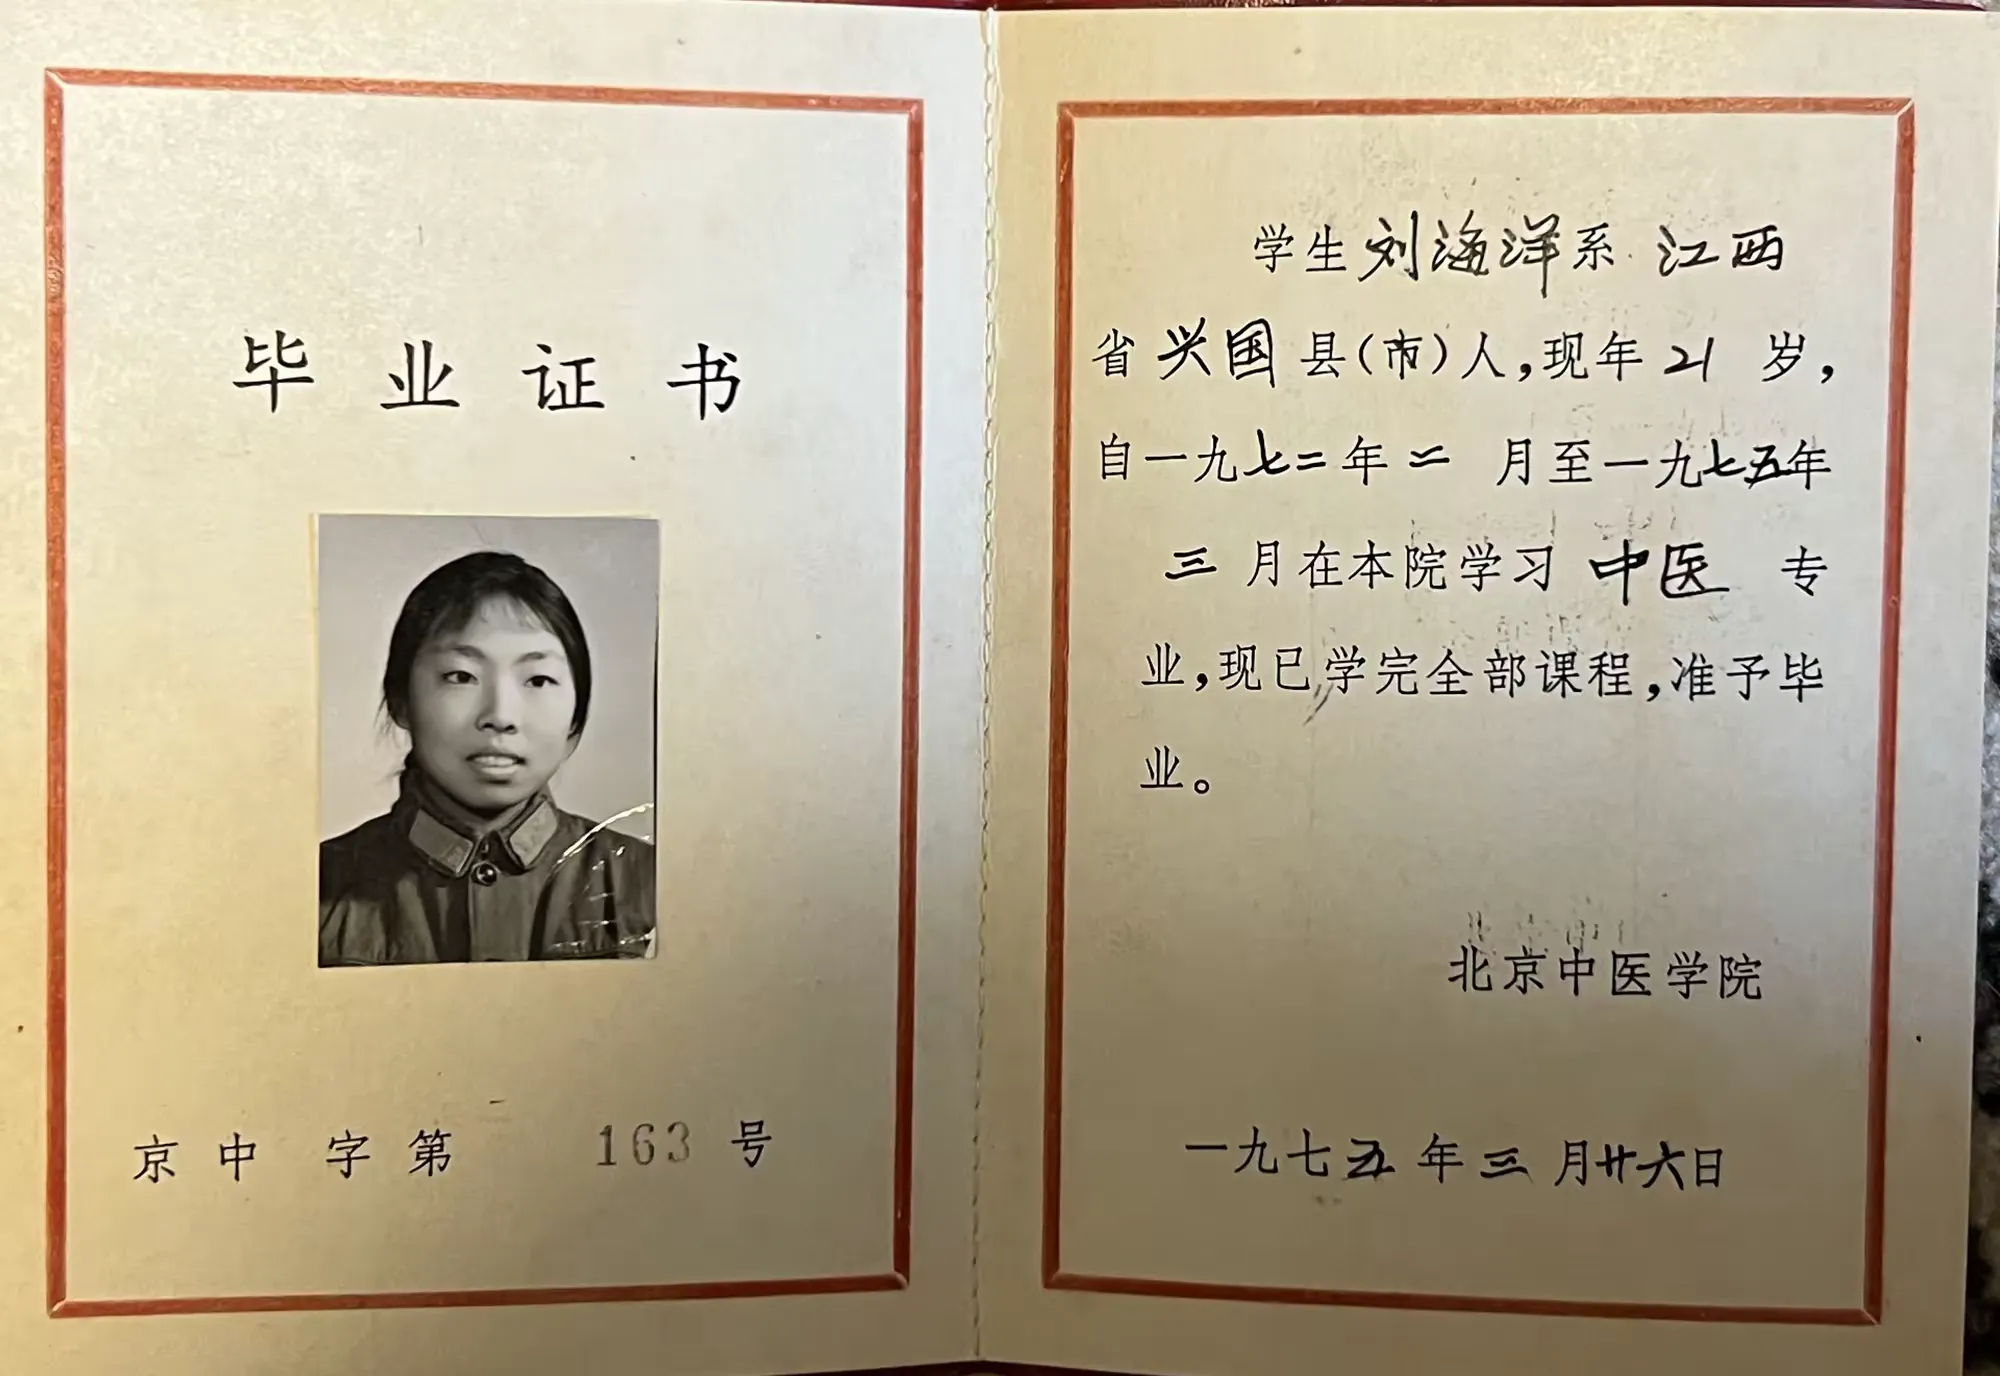 毕业证书
京中字第 163 号
学生刘海洋系江西
省兴国县(市)人,现年21岁,
自一九七二年二月至一九七五年
三月在本院学习中医专
业,现已学完全部课程,准予毕
业。
北京中医学院
一九七五年三月廿六日